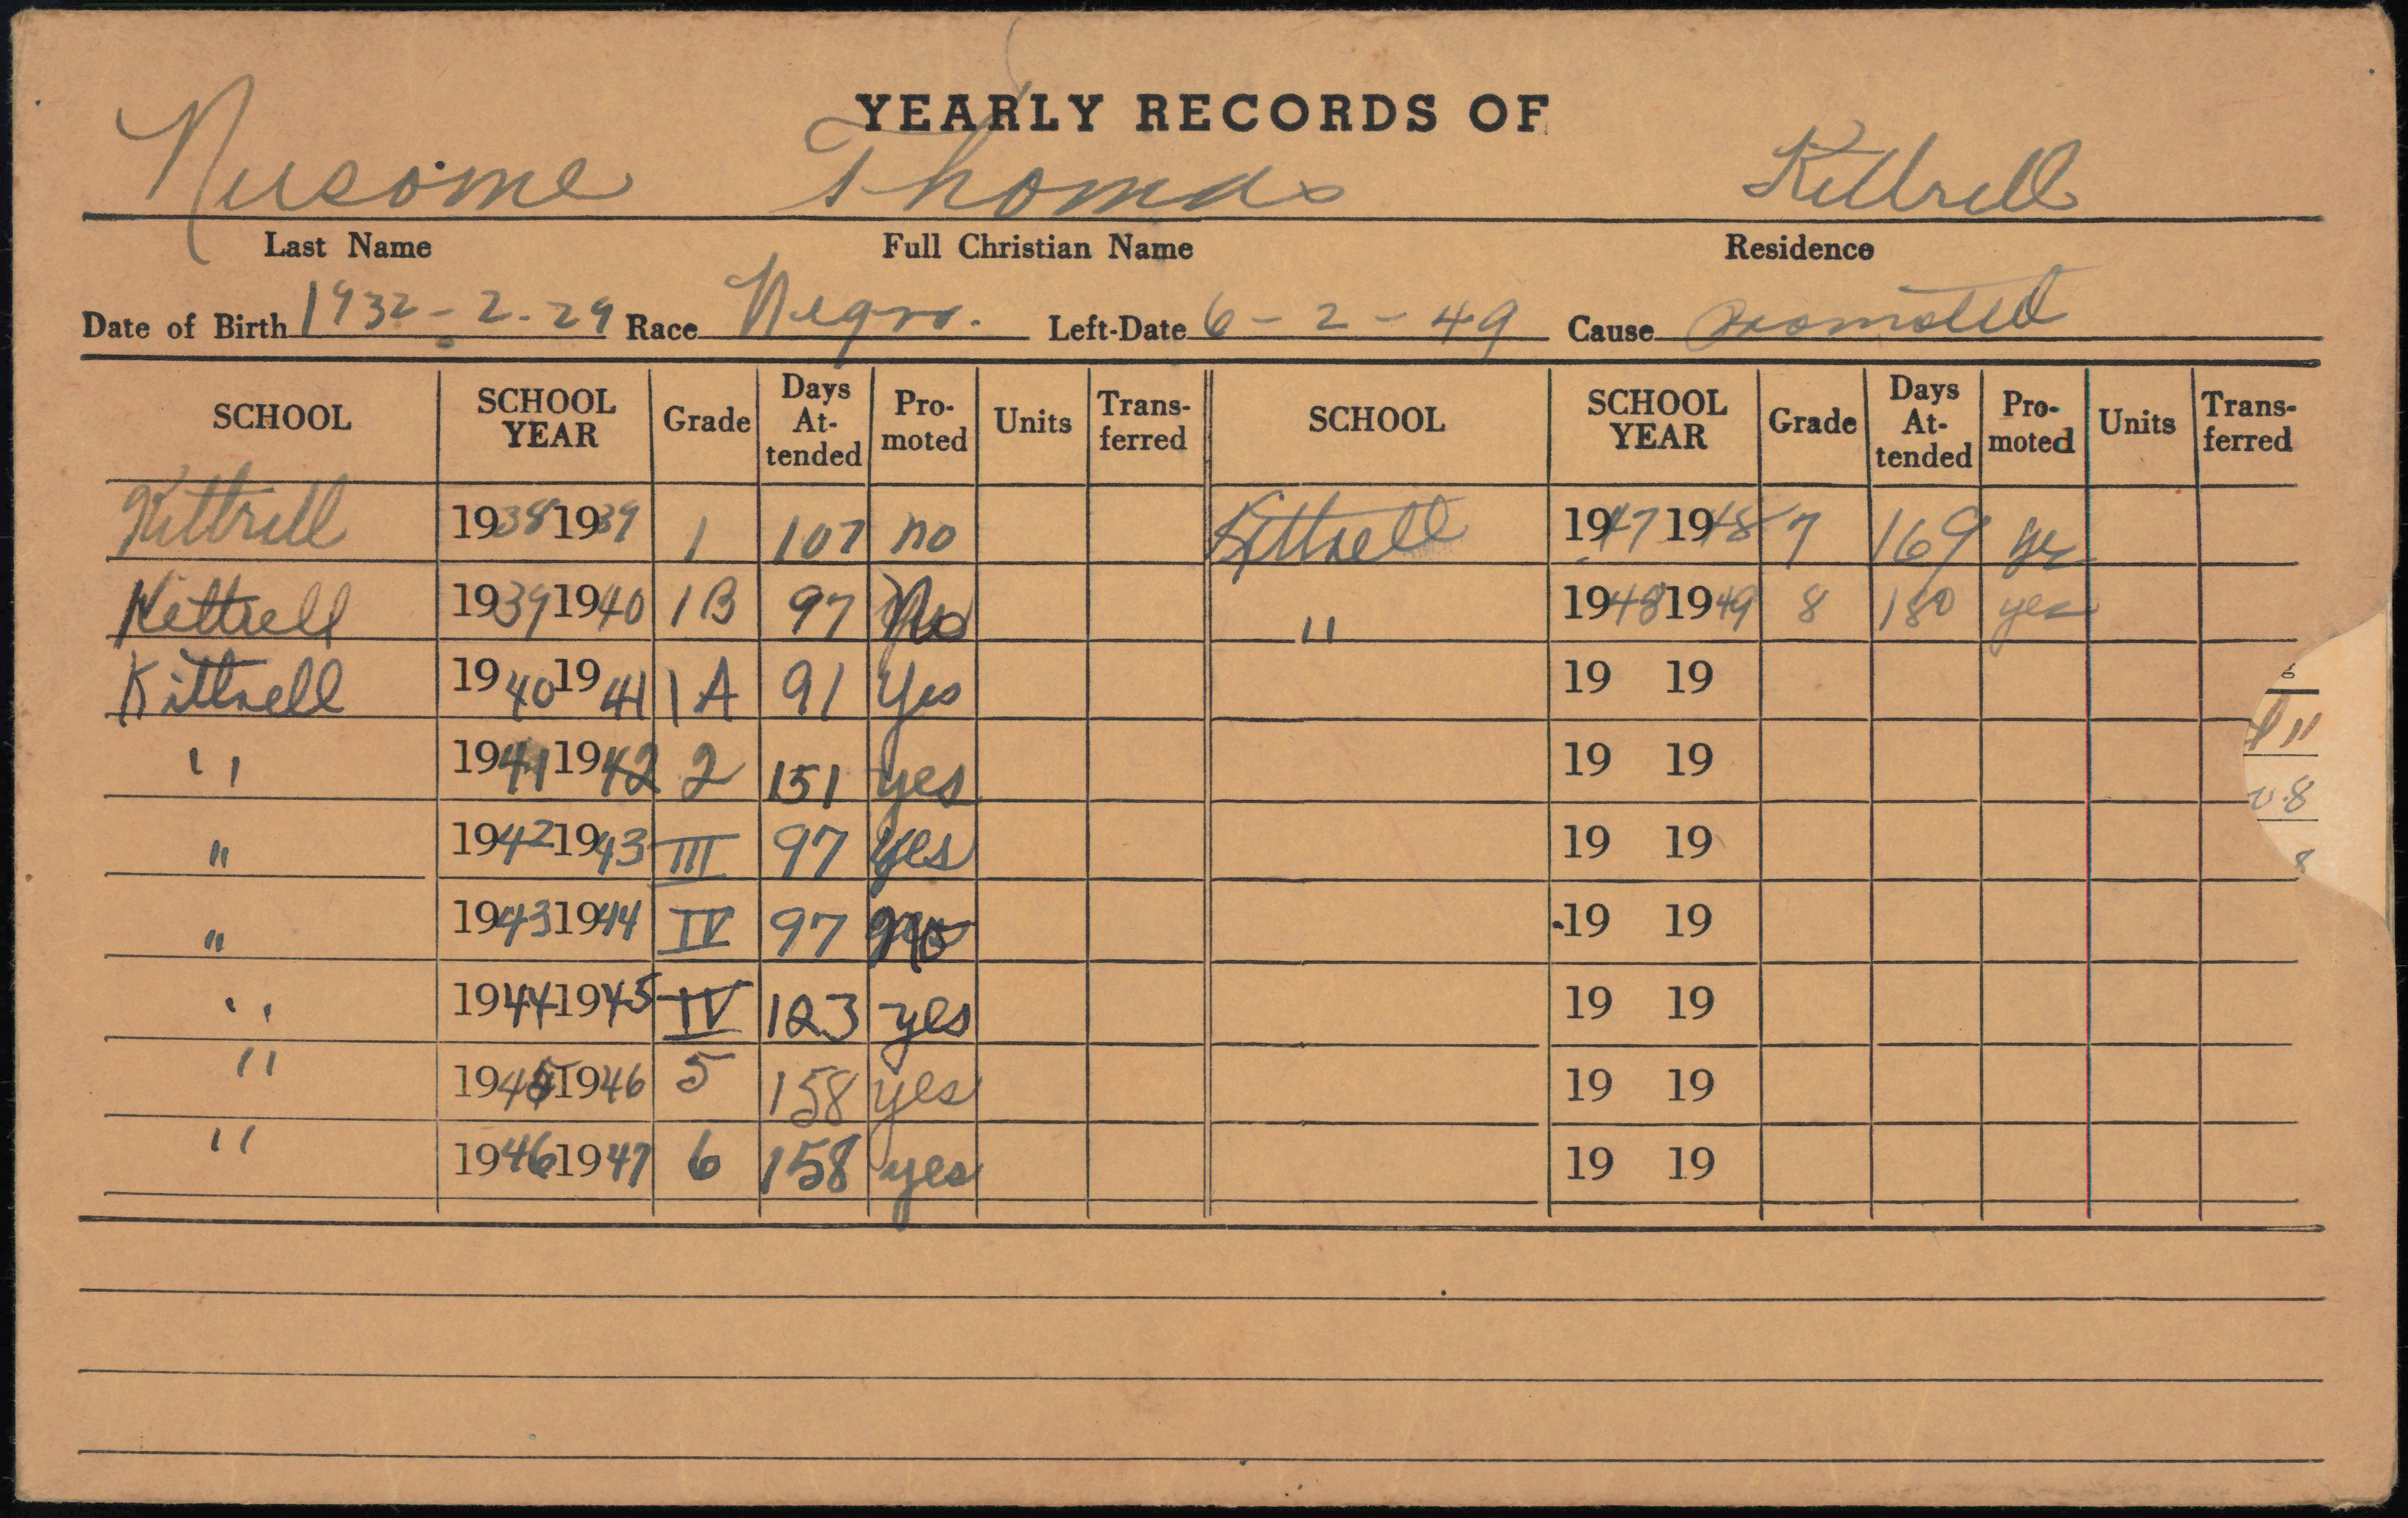 YEARLY RECORDS OF
Nusome Thomas Kittrell
Last Name Full Christian Name Residence
Date of Birth 1932-2-29 Race Negro. Left-Date 6-2-49 Cause Promoted
SCHOOL SCHOOL YEAR Grade Days At-tended Pro-moted Units Trans-ferred SCHOOL SCHOOL YEAR Grade Days At-tended Pro-moted Units Trans-ferred
Kittrell 1938 1939 1 107 no Kittrell 1947 1948 7 169 yes
Kittrell 1939 1940 1B 97 No " 1948 1949 8 180 yes
Kittrell 1940 1941 1A 91 Yes 19 19
" 1941 1942 2 151 yes 19 19
" 1942 1943 III 97 yes 19 19
" 1943 1944 IV 97 no 19 19
" 1944 1945 IV 123 yes 19 19
" 1945 1946 5 158 yes 19 19
" 1946 1947 6 158 yes 19 19